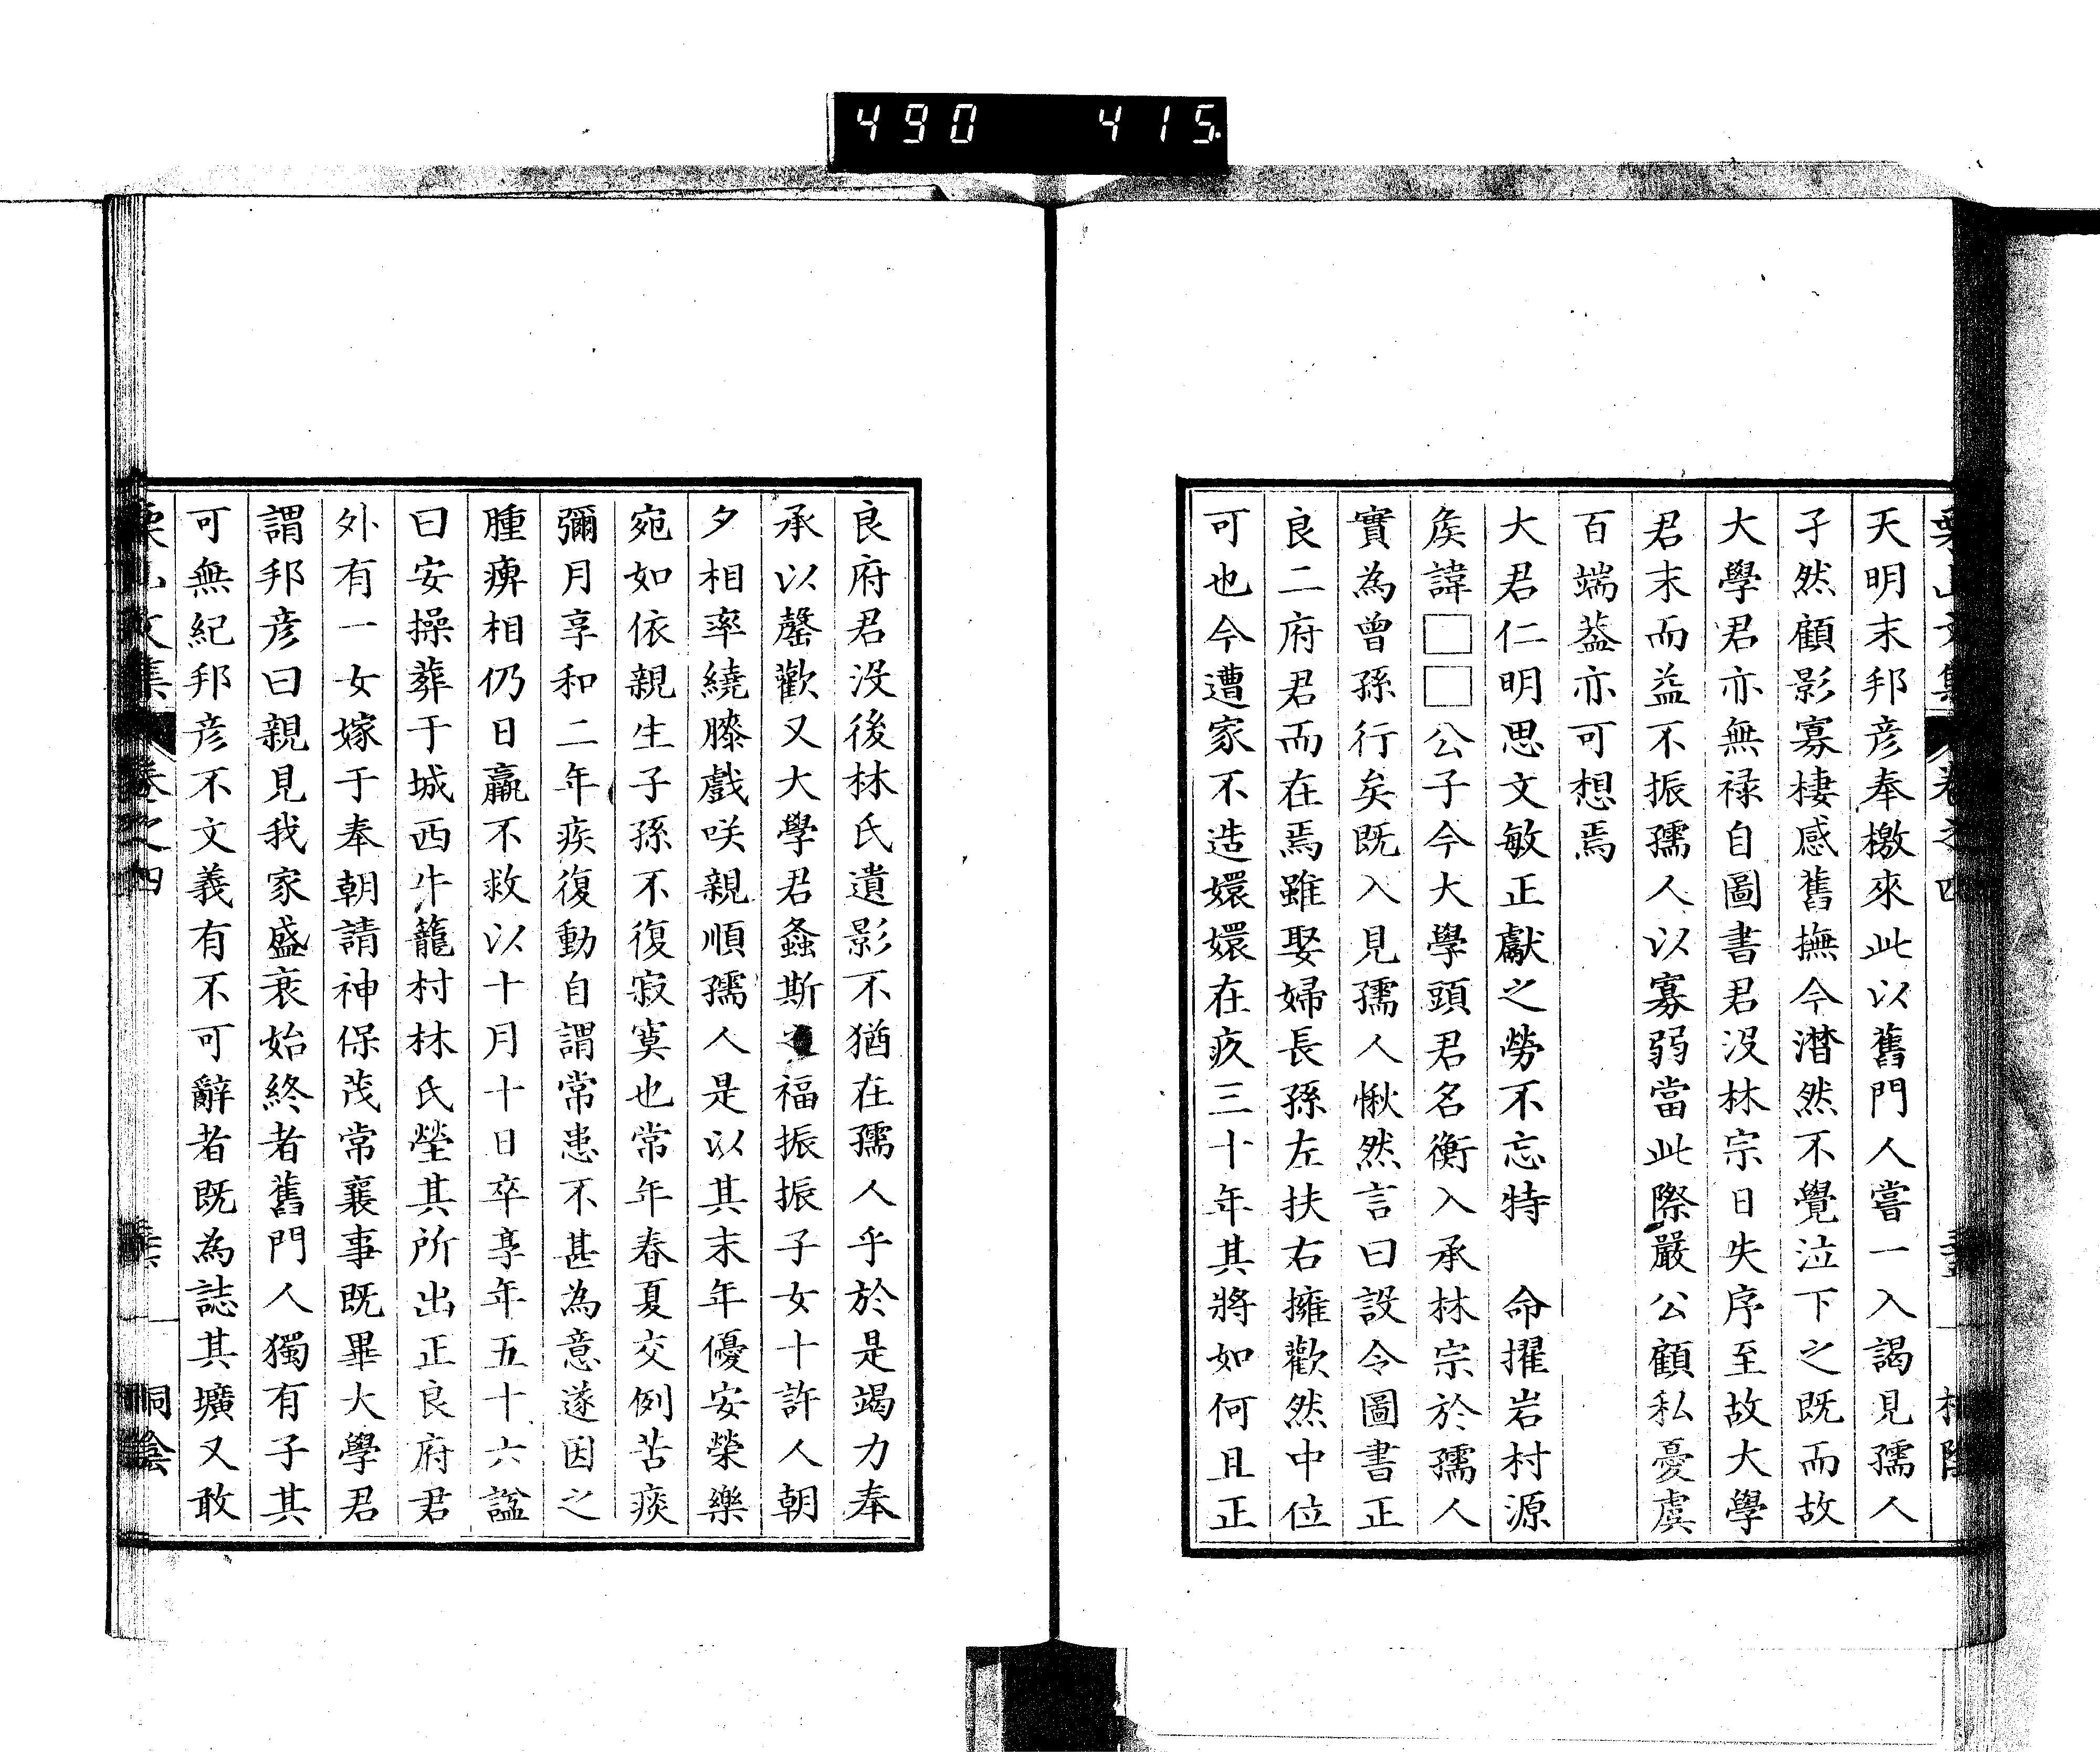 490 415.
天明末邦彦奉檄來此以舊門人嘗一入謁見孺人
孑然顧影寡棲感舊撫今潸然不覺泣下之既而故
大學君亦無祿自圖書君没林宗日失序至故大學
君末而益不振孺人以寡弱當此際嚴公顧私憂虞
百端葢亦可想焉
大君仁明思文敏正獻之勞不忘特 命擢岩村源
矦諱□□公子今大學頭君名衡入承林宗於孺人
實為曾孫行矣既入見孺人愀然言曰設令圖書正
良二府君而在焉雖娶婦長孫左扶右擁歡然中位
可也今遭家不造嬛嬛在疚三十年其將如何且正
良府君没後林氏遺影不猶在孺人乎於是竭力奉
承以罄歡又大學君螽斯之福振振子女十許人朝
夕相率繞膝戲咲親順孺人是以其末年優安榮樂
宛如依親生子孫不復寂寞也常年春夏交例苦痰
彌月享和二年疾復動自謂常患不甚為意遂因之
腫痺相仍日羸不救以十月十日卒享年五十六諡
曰安操葬于城西牛籠村林氏塋其所出正良府君
外有一女嫁于奉朝請神保茂常襄事既畢大學君
謂邦彦曰親見我家盛衰始終者舊門人獨有子其
可無紀邦彦不文義有不可辭者既為誌其壙又敢
文集 卷之四
桐陰